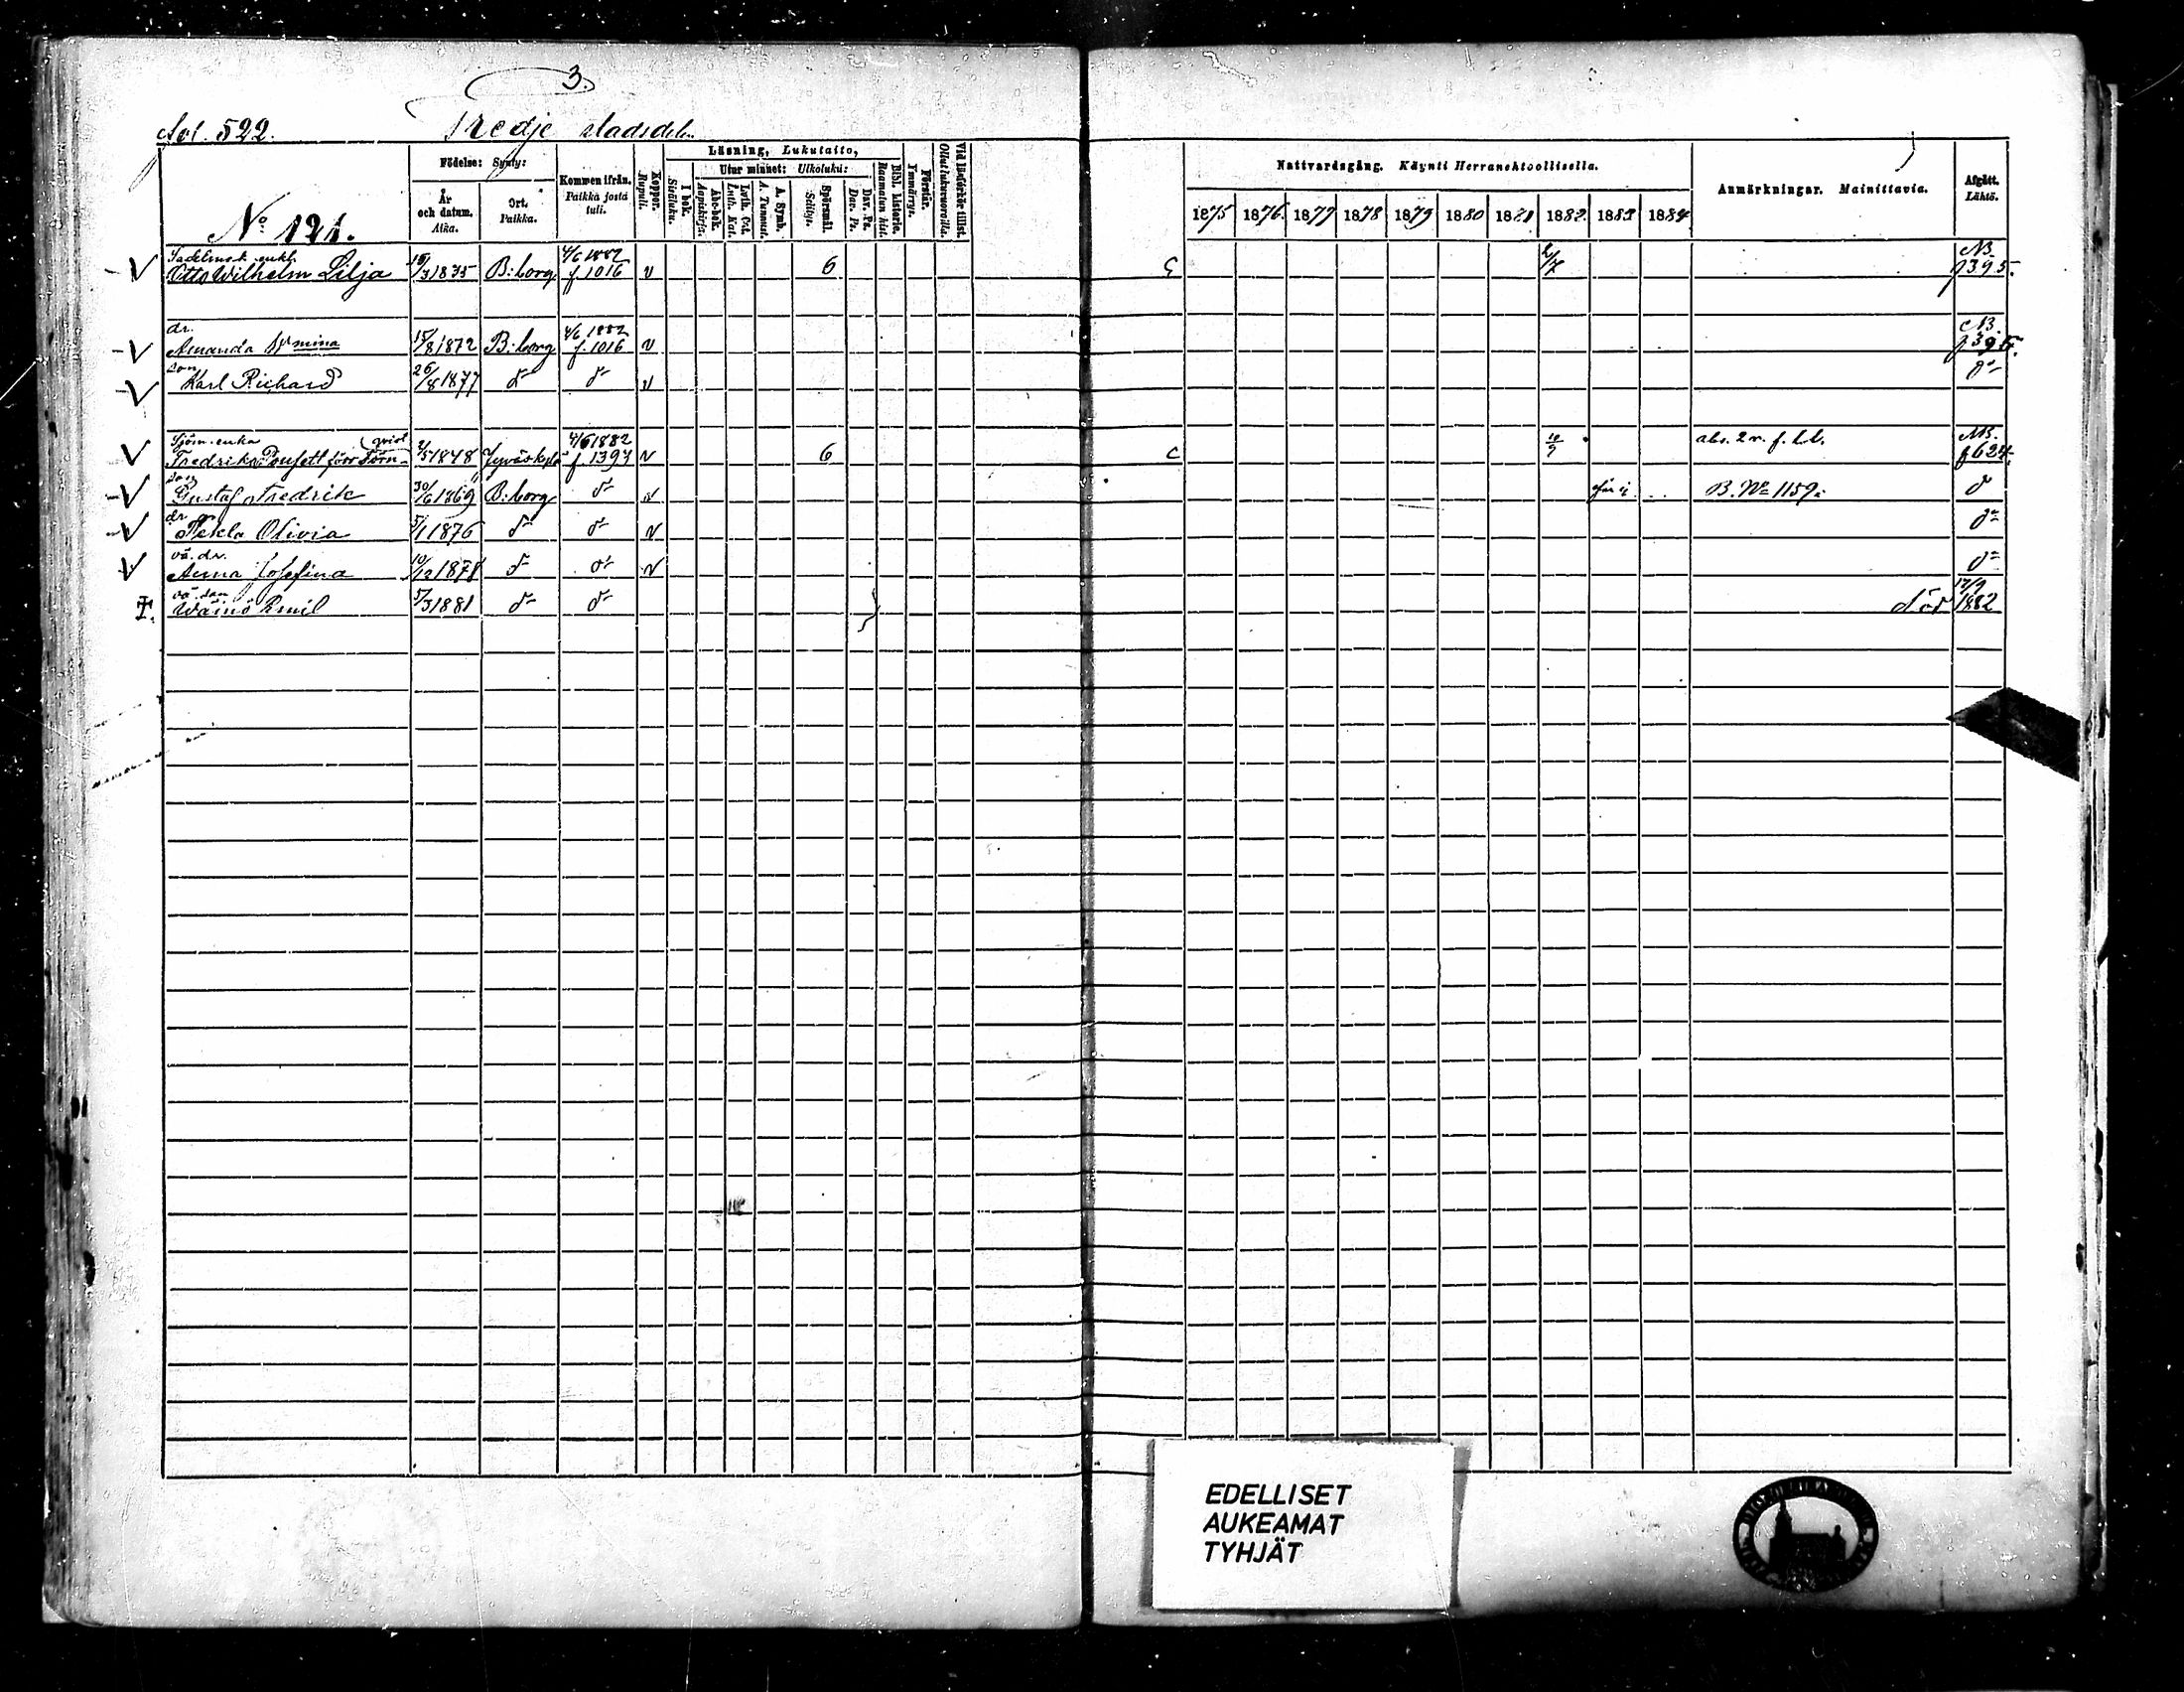 3.
fol. 522. Tredje stadsdelen
Födelse: Synty:
Läsning, Lukutaito,
Utur minnet: Ulkoluku:
År och datum. Aika.
Ort. Paikka.
Kommen ifrån. Paikka josta tuli.
Koppor. Rupuli.
I bok. Sisäluku.
Abc-bok. Aapiskirja.
Luth. Cat. Luth. Kat.
A. Symb. A. Tunnust.
Spörsmål. Selitys.
Dav. Ps. Dav. Ps.
Bibl. historie. Raamatun hist.
Förstår. Ymmärrys.
Vid läsförhör tillst. Ollut lukuvuorolla.
Nattvardsgång. Käynti Herranehtoollisella.
1875 1876. 1877 1878 1879 1880 1881 1882. 1883 1884
Anmärkningar. Mainittavia.
Afgått. Lähtö.
No 121.
enkl. 4/6 1882 NB.
Otto Wilhelm Lilja 1835 B:borg f. 1016 v 6 2/7 f 395.
dr. 4/6 1882 NB.
Amanda 15/8 1872 B:borg f. 1016 v f 395.
son
Karl Richard 26/8 1877 d:o d:o v d:o
Sjöm. enka 4/6 1882 NB.
Fredrika 2/5 1848 Jyväskylä f. 1393 v 6 abs. 2 r. f. l. b. f 624.
son
Gustaf Fredrik 30/6 1869 B:borg d:o v B. No 1159. d:o
dr
Tekla Olivia 5/1 1876 d:o d:o v d:o
oä. dr.
Anna Josefina 10/12 1878 d:o d:o v d:o
oä. son 17/9
Wäinö Emil 5/3 1881 d:o d:o död 1882
EDELLISET
AUKEAMAT
TYHJÄT